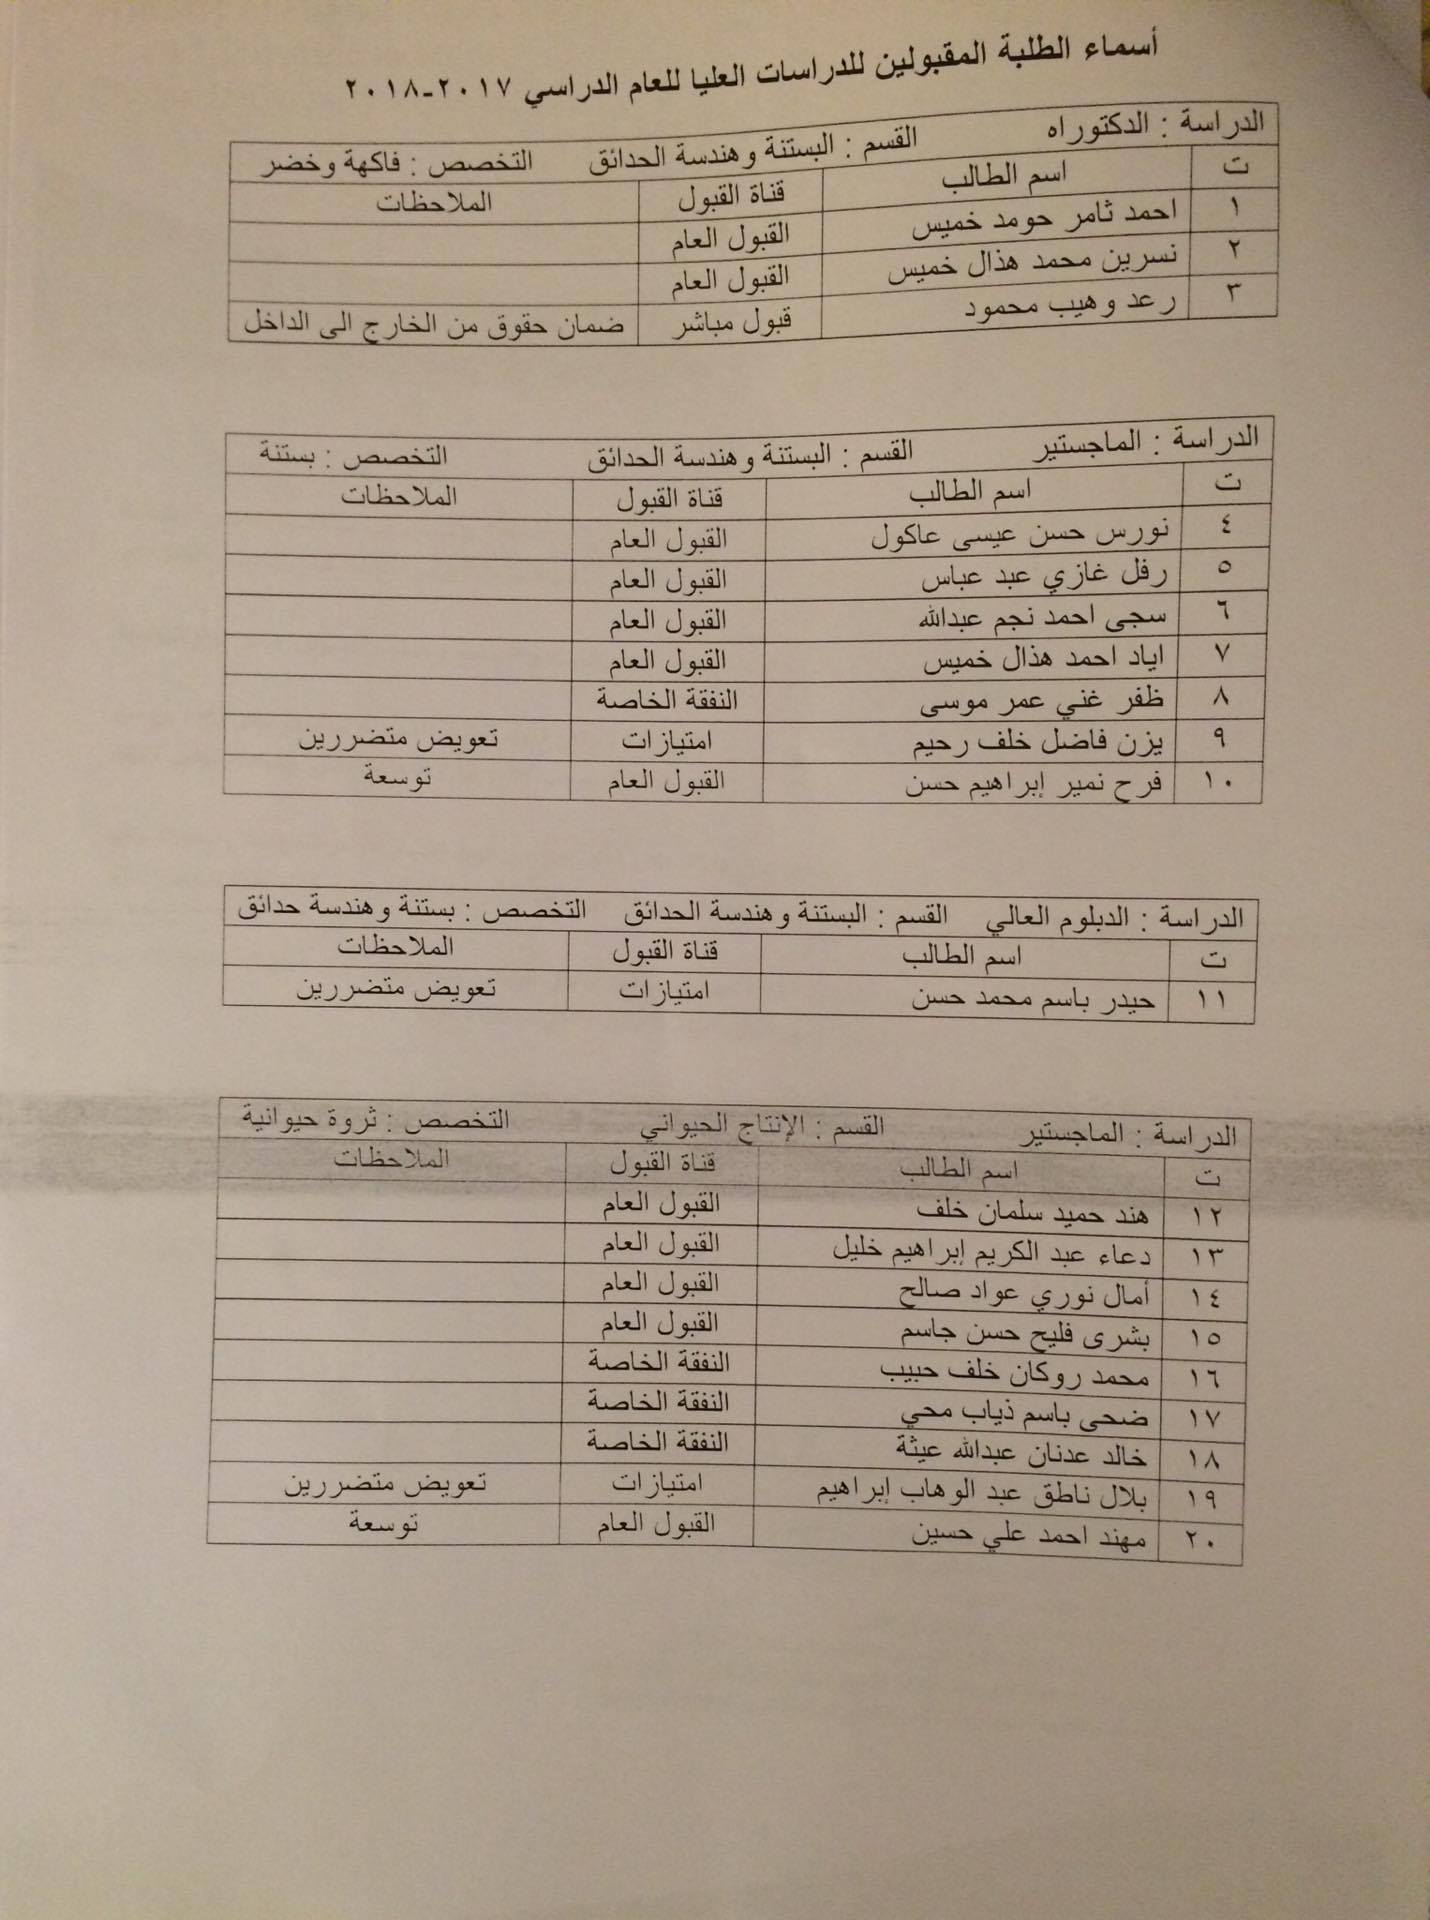 أسماء الطلبة المقبولين للدراسات العليا للعام الدراسي ٢٠١٧-٢٠١٨
الدراسة : الدكتوراه القسم : البستنة وهندسة الحدائق التخصص : فاكهة وخضر
ت اسم الطالب قناة القبول الملاحظات
١ احمد ثامر حومد خميس القبول العام
٢ نسرين محمد هذال خميس القبول العام
٣ رعد وهيب محمود قبول مباشر ضمان حقوق من الخارج الى الداخل
الدراسة : الماجستير القسم : البستنة وهندسة الحدائق التخصص : بستنة
ت اسم الطالب قناة القبول الملاحظات
٤ نورس حسن عيسى عاكول القبول العام
٥ رفل غازي عبد عباس القبول العام
٦ سجى احمد نجم عبدالله القبول العام
٧ اياد احمد هذال خميس القبول العام
٨ ظفر غني عمر موسى النفقة الخاصة
٩ يزن فاضل خلف رحيم امتيازات تعويض متضررين
١٠ فرح نمير إبراهيم حسن القبول العام توسعة
الدراسة : الدبلوم العالي القسم : البستنة وهندسة الحدائق التخصص : بستنة وهندسة حدائق
ت اسم الطالب قناة القبول الملاحظات
١١ حيدر باسم محمد حسن امتيازات تعويض متضررين
الدراسة : الماجستير القسم : الإنتاج الحيواني التخصص : ثروة حيوانية
ت اسم الطالب قناة القبول الملاحظات
١٢ هند حميد سلمان خلف القبول العام
١٣ دعاء عبد الكريم إبراهيم خليل القبول العام
١٤ أمال نوري عواد صالح القبول العام
١٥ بشرى فليح حسن جاسم القبول العام
١٦ محمد روكان خلف حبيب النفقة الخاصة
١٧ ضحى باسم ذياب محي النفقة الخاصة
١٨ خالد عدنان عبدالله عيثة النفقة الخاصة
١٩ بلال ناطق عبد الوهاب إبراهيم امتيازات تعويض متضررين
٢٠ مهند احمد علي حسين القبول العام توسعة